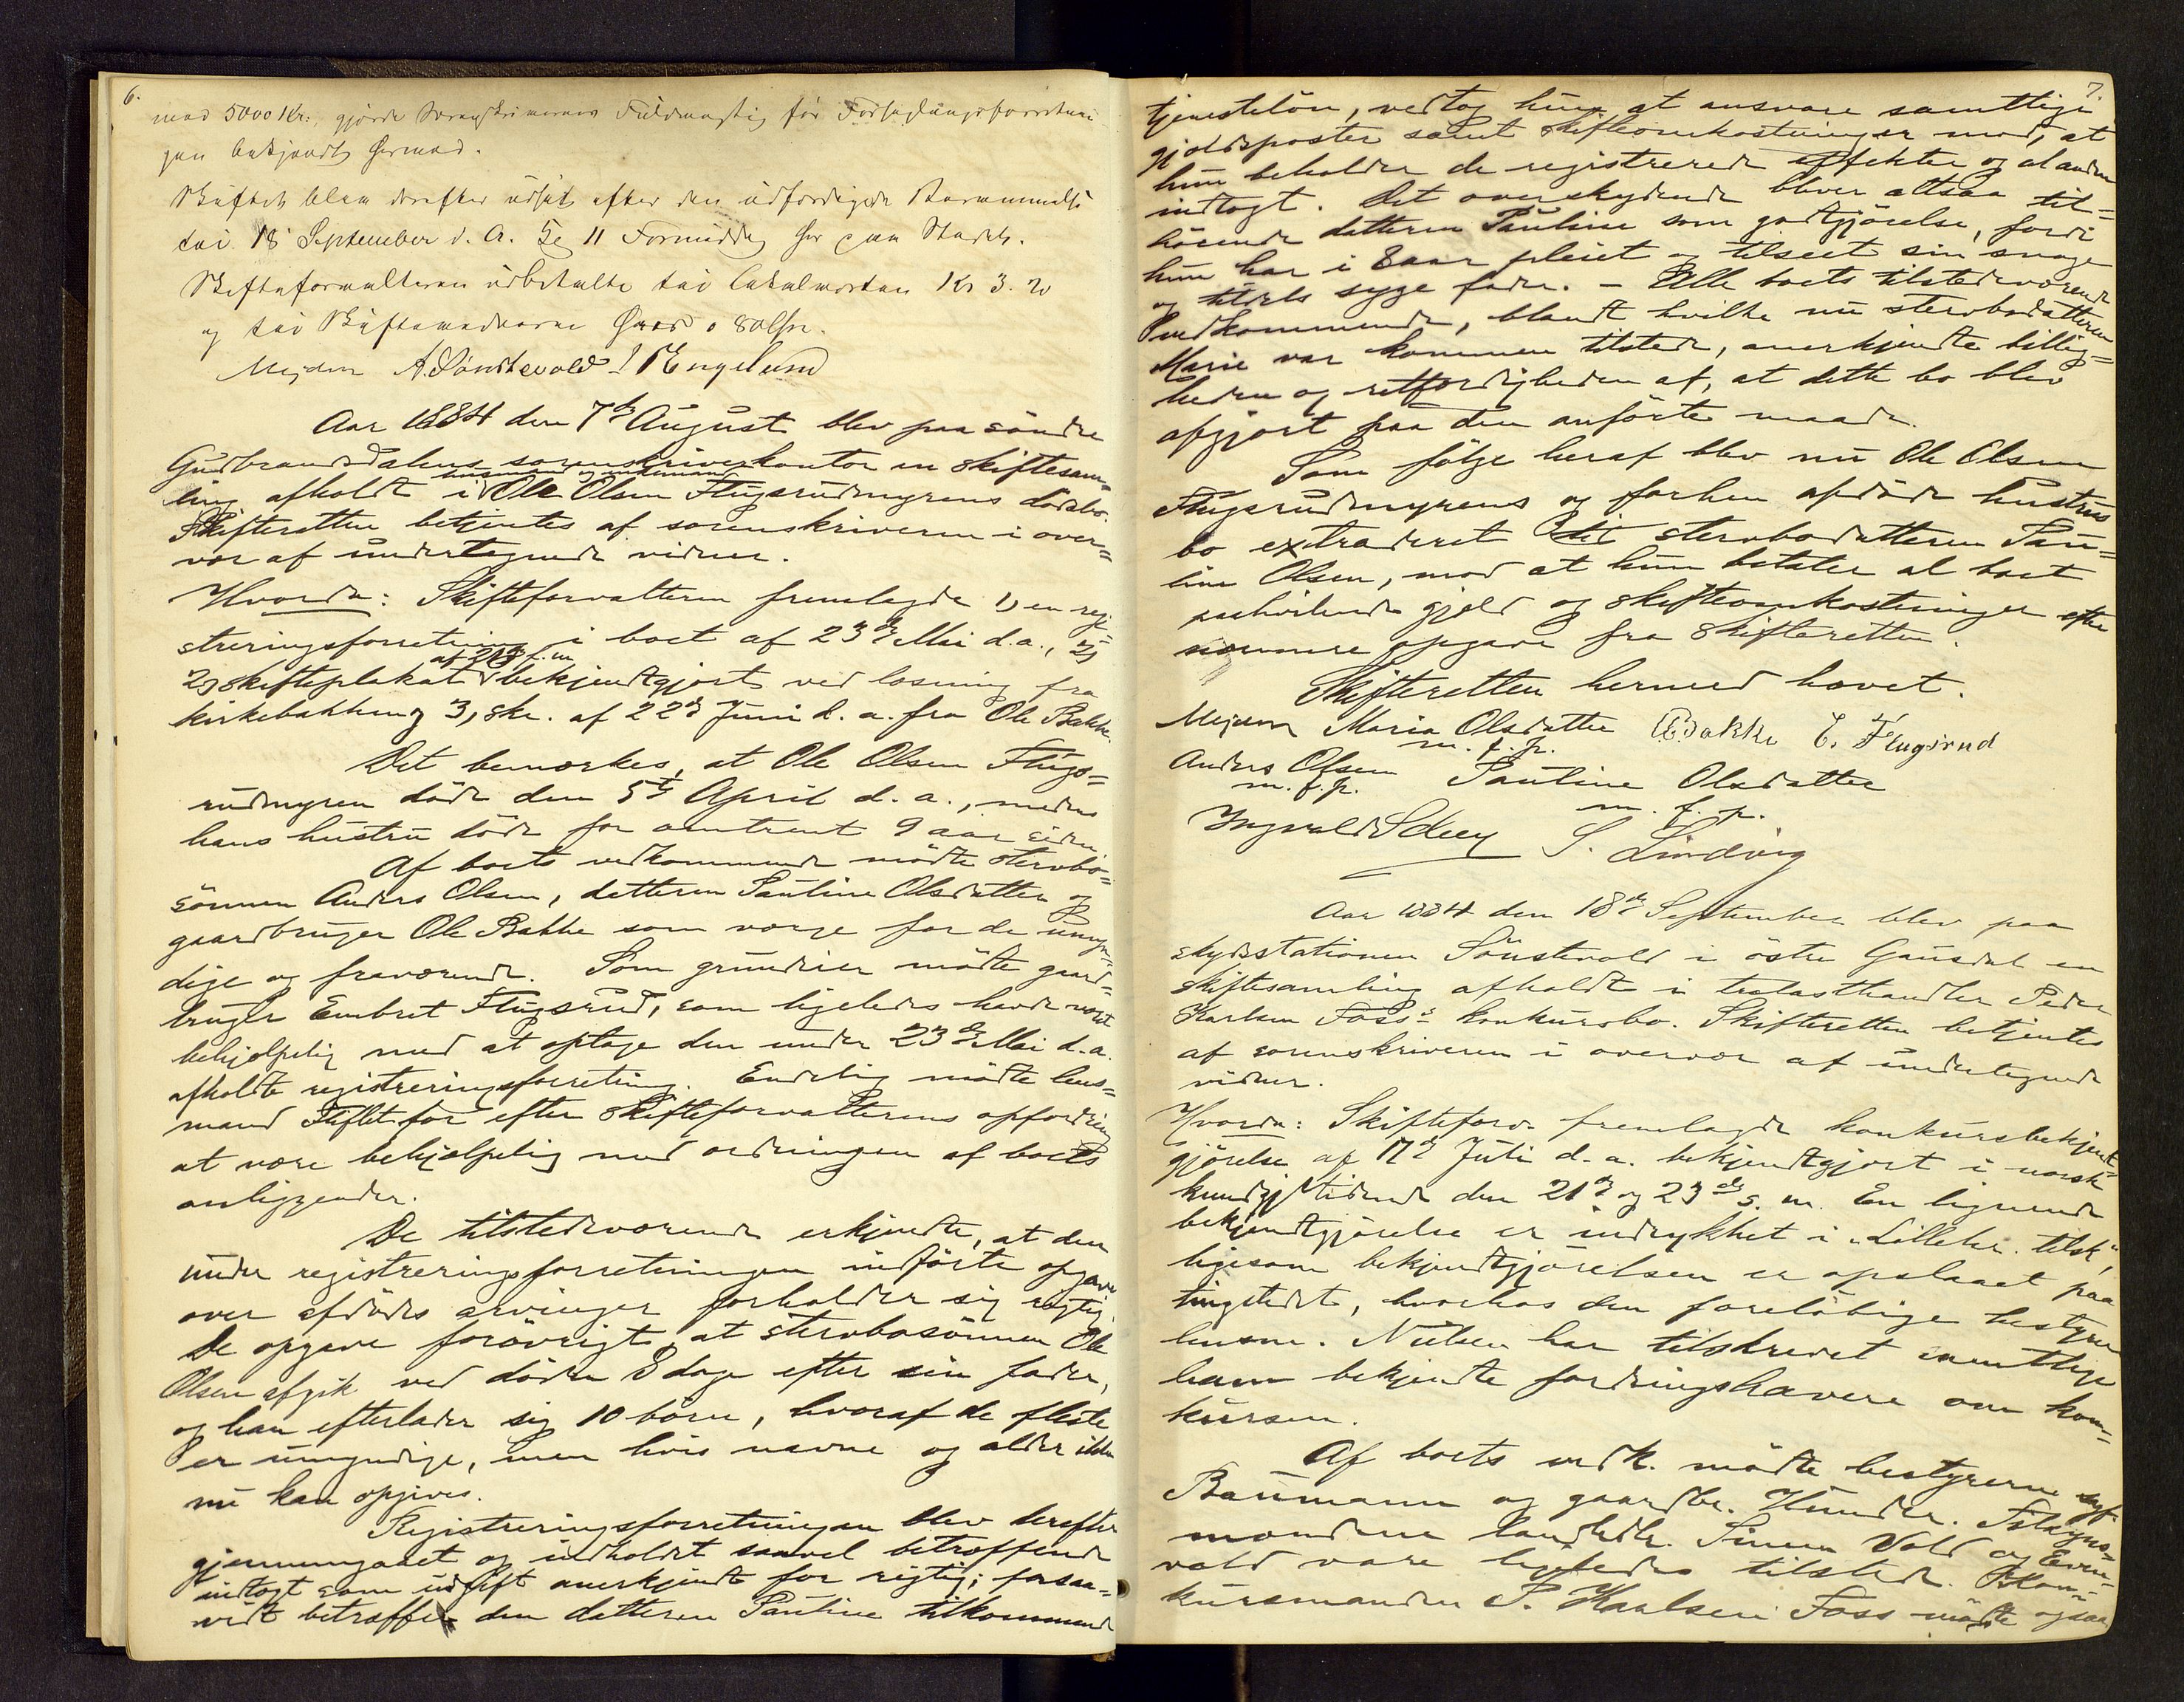 6.
mod 5000 Kr., gjorde Sorenskriverens Fuldmægtig för Forseglingsforretnin
gen bekjendt hermed.
Skiftet blev derefter udsat efter den udfærdigede Berammelse
til 18 September d. A. Kl 11 Formiddag her paa Stedet.
Skifteforvalteren udbetalte til Lokalværten Kr 3.20
og til Skiftevidnerne hver 80 Øre.
Mejdem A. Sönstevold I Engelund
Aar 1884 den 7de August blev paa söndre
Gudbrandsdalens sorenskriverkontor en skiftesam=
ling afholdt i husmand og enkemand Ole Olsen Flugsrudmyrens dödsbo.
Skifteretten betjentes af sorenskriveren i over=
vær af undertegnede vidner.
Hvorda: Skifteforvalteren fremlagde 1) en regi=
streringsforretning i boet af 23de Mai d.a., 2)
2) skifteplakat bekjendtgjort ved læsning fra
kirkebakken og 3, skr. af 22de Juni d. a. fra Ole Bakke.
Det bemærkes, at Ole Olsen Flugs=
rudmyren döde den 5te April d. a., medens
hans hustru döde for omtrent 9 aar siden.
Af boets vedkommende mödte stervbo=
sönnen Anders Olsen, datteren Pauline Olsdatter og
gaardbruger Ole Bakke som værge for de umyn=
dige og fraværende. Som grundeier mödte gaard=
bruger Embret Flugsrud, som ligeledes havde været
behjelpelig med at optage den under 23de Mai d. a.
afholdte registreringsforretning. Endelig mödte lens=
mand Fliflet for efter skifteforvalterens opfordring
at være behjælpelig med ordningen af boets
anliggender.
De tilstedeværende erkjendte, at den
under registreringsforretningen indförte opgave
over afdödes arvinger forholder sig rigtig.
De opgave forövrigt, at stervbosönnen Ole
Olsen afgik ved döden 8 dage efter sin fader,
og han efterlader sig 10 börn, hvoraf de fleste
er umyndige, men hvis navne og alder ikke
nu kan opgives.
Registreringsforretningen blev derefter
gjennemgaaet og indholdet saavel betræffende
indtægt som udgift anerkjendt for rigtig; forsaa=
vidt betræffer den datteren Pauline tilkommende
7.
tjenestelön, vedtog hun at ansvare samtlige
gjeldsposter samt skifteomkostninger mod, at
hun beholder de registrerede effekter og al anden
indtægt. Det overskydende bliver altsaa til=
hörende datteren Pauline som godtgjörelse, fordi
hun har i 8 aar pleiet og tilseet sin svage
og tildels syge fader. - Alle boets tilstedeværende
vedkommende, blandt hvilke nu stervbodatteren
Marie var kommen tilstede, anerkjendte billig=
heden og retfærdigheden af, at dette bo blev
afgjort paa den anförte maade.
Som fölge heraf blev nu Ole Olsen
Flugsrudmyrens og forhen afdöde hustrus
bo extraderet til stervbodatteren Pau=
line Olsen, mod at hun betaler al boet
paahvilende gjeld og skifteomkostninger efter
nærmere opgave fra skifteretten.
Skifteretten hermed hævet.
Mejdem Maria Olsdatter O Bakke E. Flugsrud
m. f. p.
Anders Olsen Pauline Olsdatter
m. f. p. m. f. p.
Ingvald S. Lindvig
Aar 1884 den 18de September blev paa
skydsstationen Sönstevold i östre Gausdal en
skiftesamling afholdt i trælasthandler Peder
Karlsen Foss's konkursbo. Skifteretten betjentes
af sorenskriveren i overvær af undertegnede
vidner.
Hvorda: Skifteforv. fremlagde konkursbekjendt=
gjörelse af 17de Juli d. a. bekjendtgjort i norsk
kundgj.tidende den 21de og 23de s. m. En lignende
bekjendtgjörelse er indrykket i "Lilleh. tilsk",
ligesom bekjendtgjörelsen er opslaaet paa
tingstedet, hvorhos den forelöbige bestyrer
lensm. Nielsen har tilskrevet samtlige
ham bekjendte fordringshavere om kon=
kursen.
Af boets vedk. mödte bestyrerne sagf.
Baumann og gaardbr. Hunder. Tilsyns=
mændene landhdlr. Simen Vold og Even=
vold vare ligeledes tilstede. Kon=
kursmanden P. Karlsen Foss mödte ogsaa